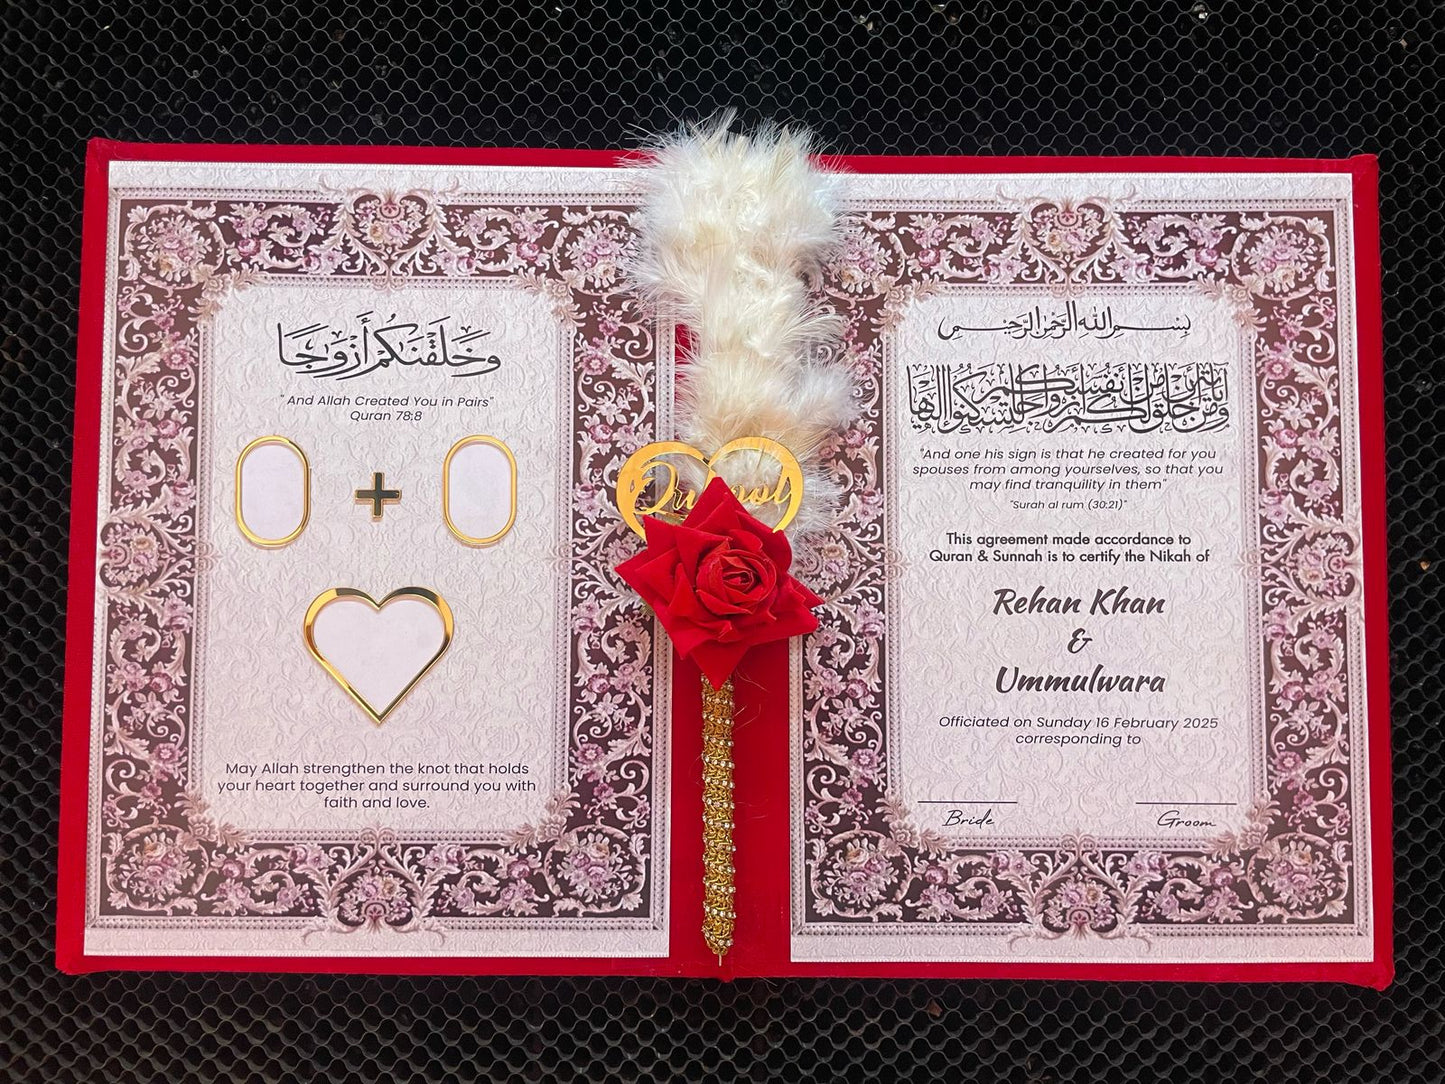 وَخَلَقْنَاكُمْ أَزْوَاجًا
" And Allah Created You in Pairs"
Quran 78;8
May Allah strengthen the knot that holds
your heart together and surround you with
faith and love.
بِسْمِ اللهِ الرَّحْمٰنِ الرَّحِيْمِ
وَمِنْ آيَاتِهِ أَنْ خَلَقَ لَكُم مِّنْ أَنفُسِكُمْ أَزْوَاجًا لِّتَسْكُنُوا إِلَيْهَا
"And one his sign is that he created for you
spouses from among yourselves, so that you
may find tranquility in them"
"Surah al rum (30:21)"
This agreement made accordance to
Quran & Sunnah is to certify the Nikah of
Rehan Khan
&
Ummulwara
Officiated on Sunday 16 February 2025
corresponding to
Bride
Groom